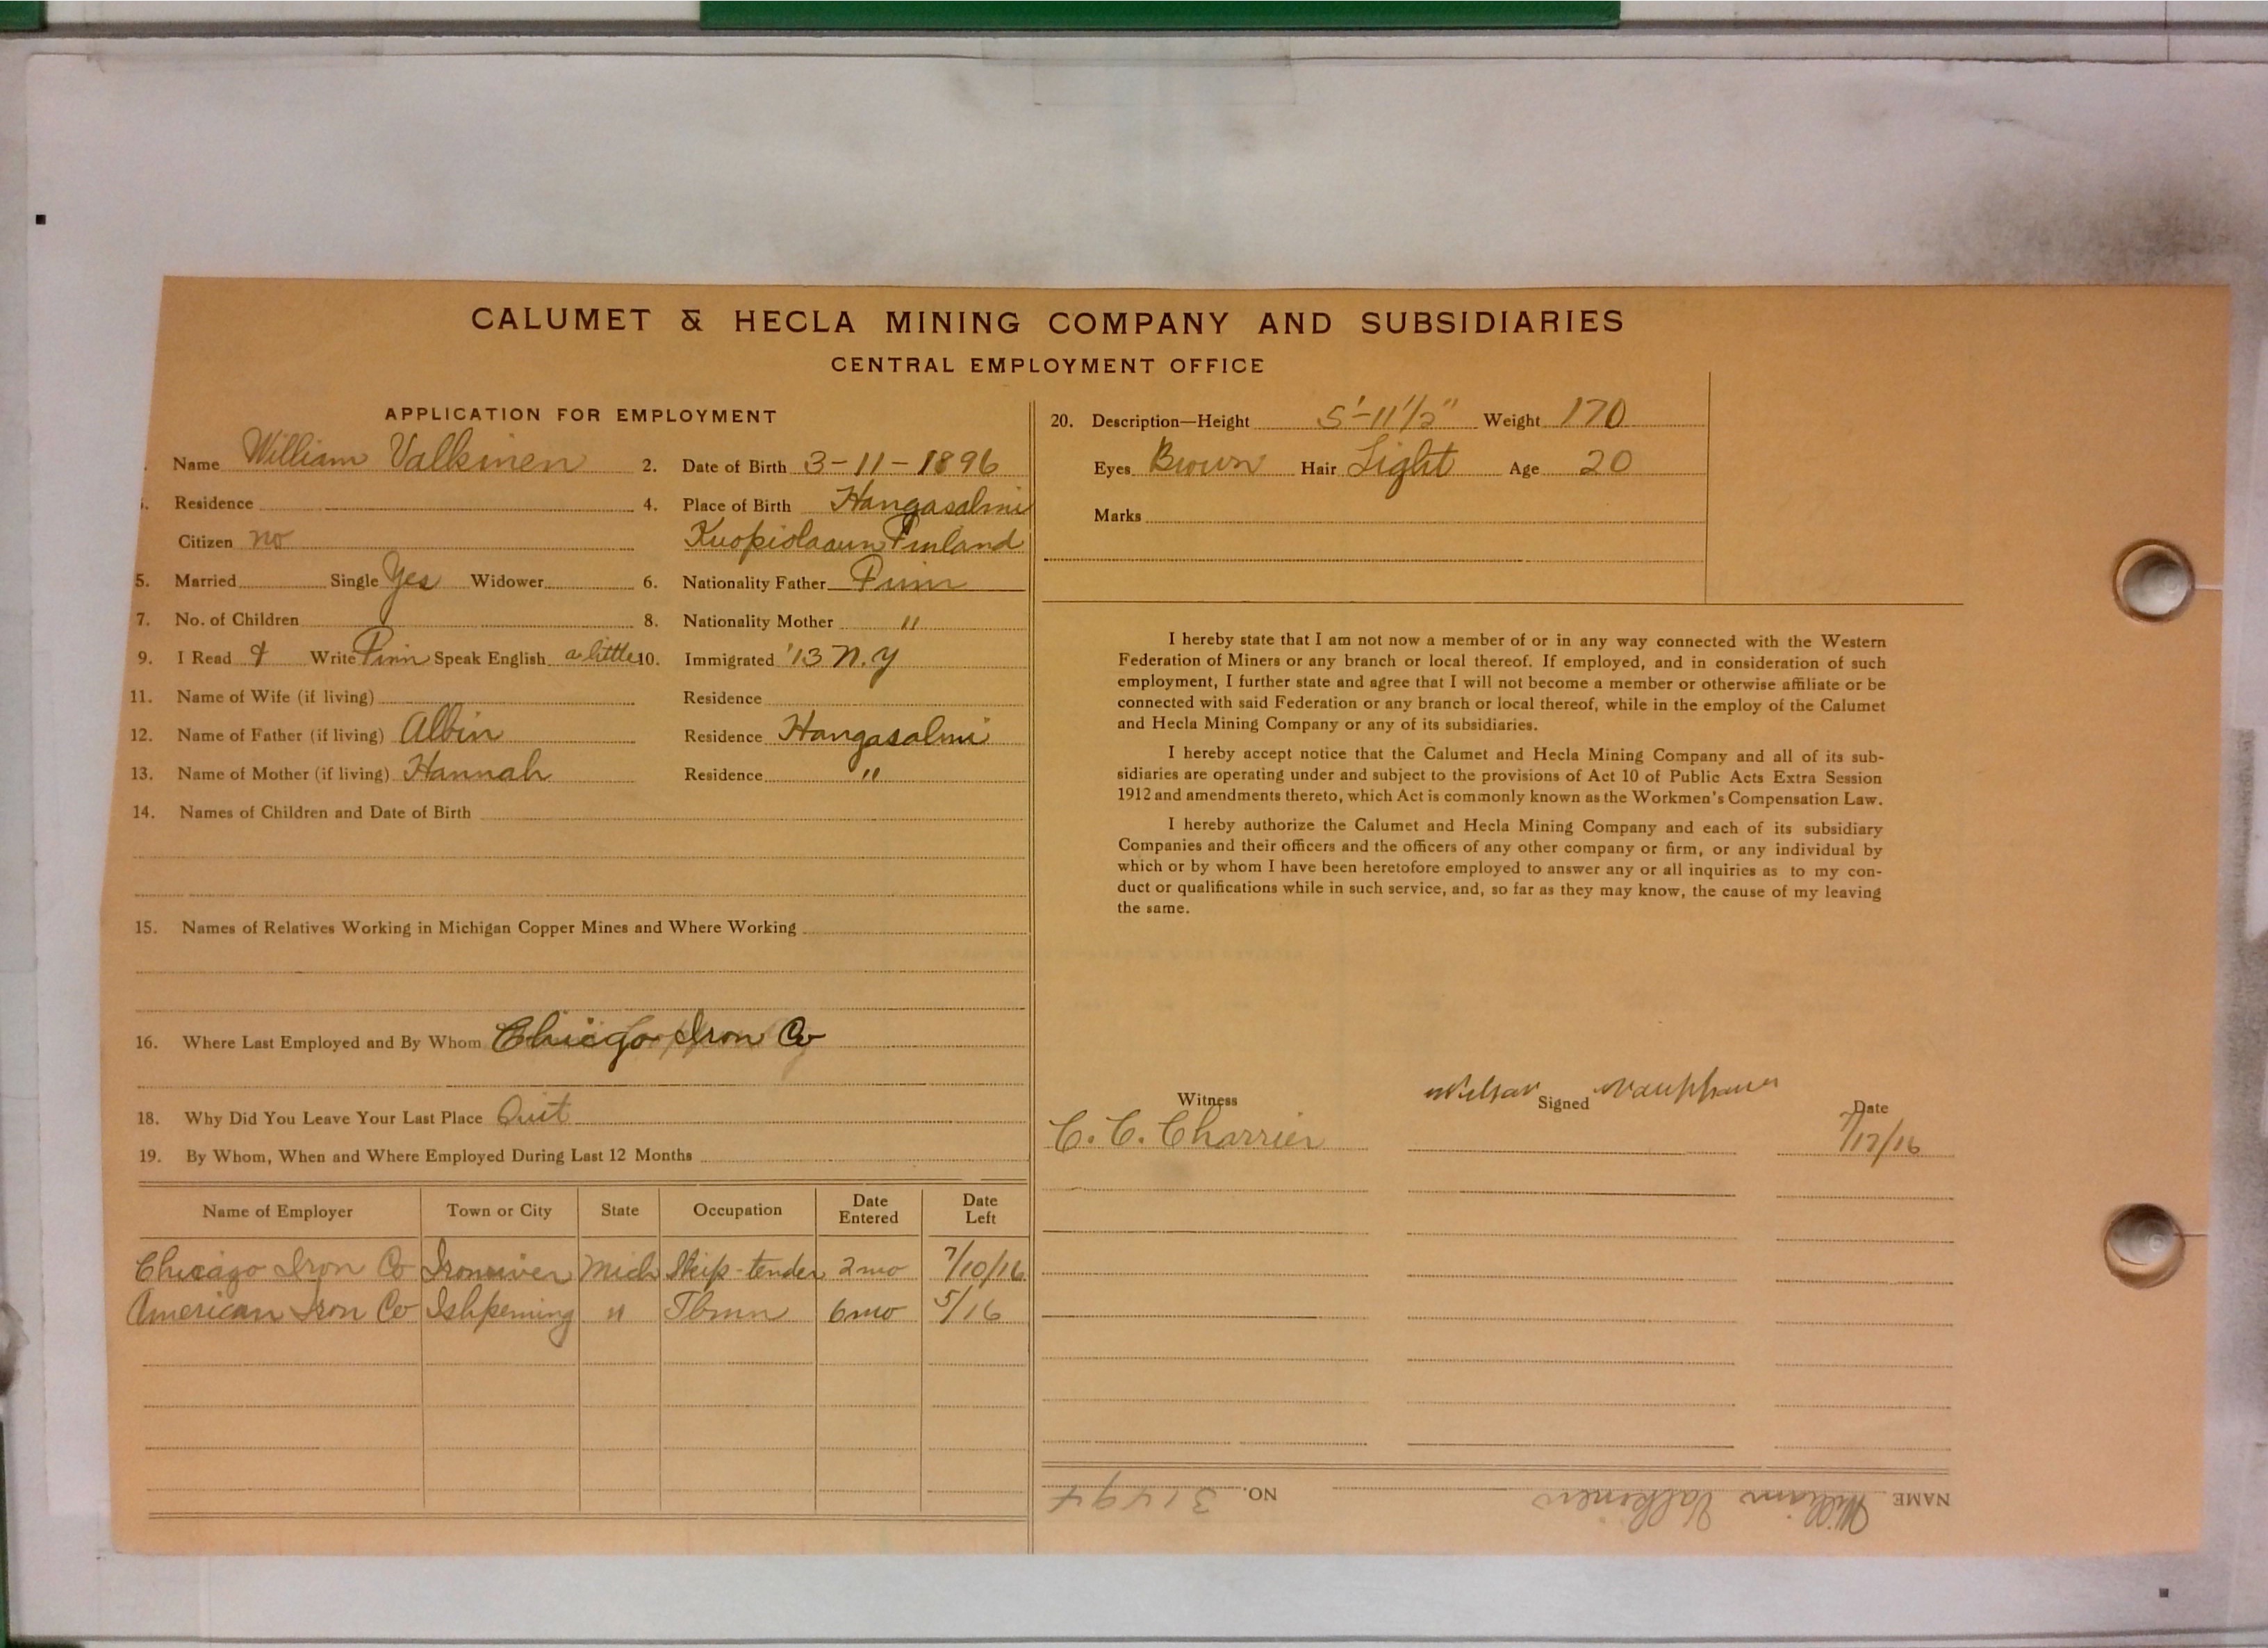 CALUMET & HECLA MINING COMPANY AND SUBSIDIARIES
CENTRAL EMPLOYMENT OFFICE
APPLICATION FOR EMPLOYMENT
Name William Valkinen 2. Date of Birth 3-11-1896
Residence 4. Place of Birth Hangasalmi
Citizen no Finland
5. Married Single Yes Widower 6. Nationality Father Finn
7. No. of Children 8. Nationality Mother "
9. I Read & Write Finn Speak English a little 10. Immigrated '13 N.Y
11. Name of Wife (if living) Residence
12. Name of Father (if living) Albin Residence Hangasalmi
13. Name of Mother (if living) Hannah Residence "
14. Names of Children and Date of Birth
15. Names of Relatives Working in Michigan Copper Mines and Where Working
16. Where Last Employed and By Whom Chicago Iron Co
18. Why Did You Leave Your Last Place Quit
19. By Whom, When and Where Employed During Last 12 Months
Name of Employer Town or City State Occupation Date Entered Date Left
Chicago Iron Co Ironriver Mich Skip-tender 2mo 7/10/16
American Iron Co Ishpeming " 6mo 5/16
20. Description—Height 5'-11 1/2" Weight 170
Eyes Brown Hair Light Age 20
Marks
I hereby state that I am not now a member of or in any way connected with the Western
Federation of Miners or any branch or local thereof. If employed, and in consideration of such
employment, I further state and agree that I will not become a member or otherwise affiliate or be
connected with said Federation or any branch or local thereof, while in the employ of the Calumet
and Hecla Mining Company or any of its subsidiaries.
I hereby accept notice that the Calumet and Hecla Mining Company and all of its sub-
sidiaries are operating under and subject to the provisions of Act 10 of Public Acts Extra Session
1912 and amendments thereto, which Act is commonly known as the Workmen's Compensation Law.
I hereby authorize the Calumet and Hecla Mining Company and each of its subsidiary
Companies and their officers and the officers of any other company or firm, or any individual by
which or by whom I have been heretofore employed to answer any or all inquiries as to my con-
duct or qualifications while in such service, and, so far as they may know, the cause of my leaving
the same.
Witness Signed Date
C. C. Charrier 7/17/16
NAME William Valkinen NO.